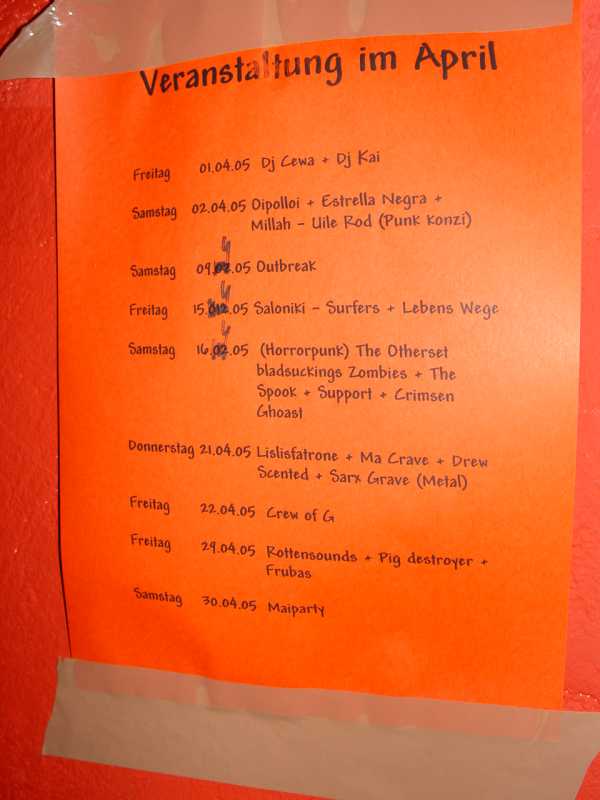 Veranstaltung im April
Freitag 01.04.05 Dj Cewa + Dj Kai
Samstag 02.04.05 Oipolloi + Estrella Negra +
Millah - Uile Rod (Punk Konzi)
Samstag 09.4.05 Outbreak
Freitag 15.4.05 Saloniki - Surfers + Lebens Wege
Samstag 16.4.05 (Horrorpunk) The Otherset
bladsuckings Zombies + The
Spook + Support + Crimsen
Ghoast
Donnerstag 21.04.05 Lislisfatrone + Ma Crave + Drew
Scented + Sarx Grave (Metal)
Freitag 22.04.05 Crew of G
Freitag 29.04.05 Rottensounds + Pig destroyer +
Frubas
Samstag 30.04.05 Maiparty